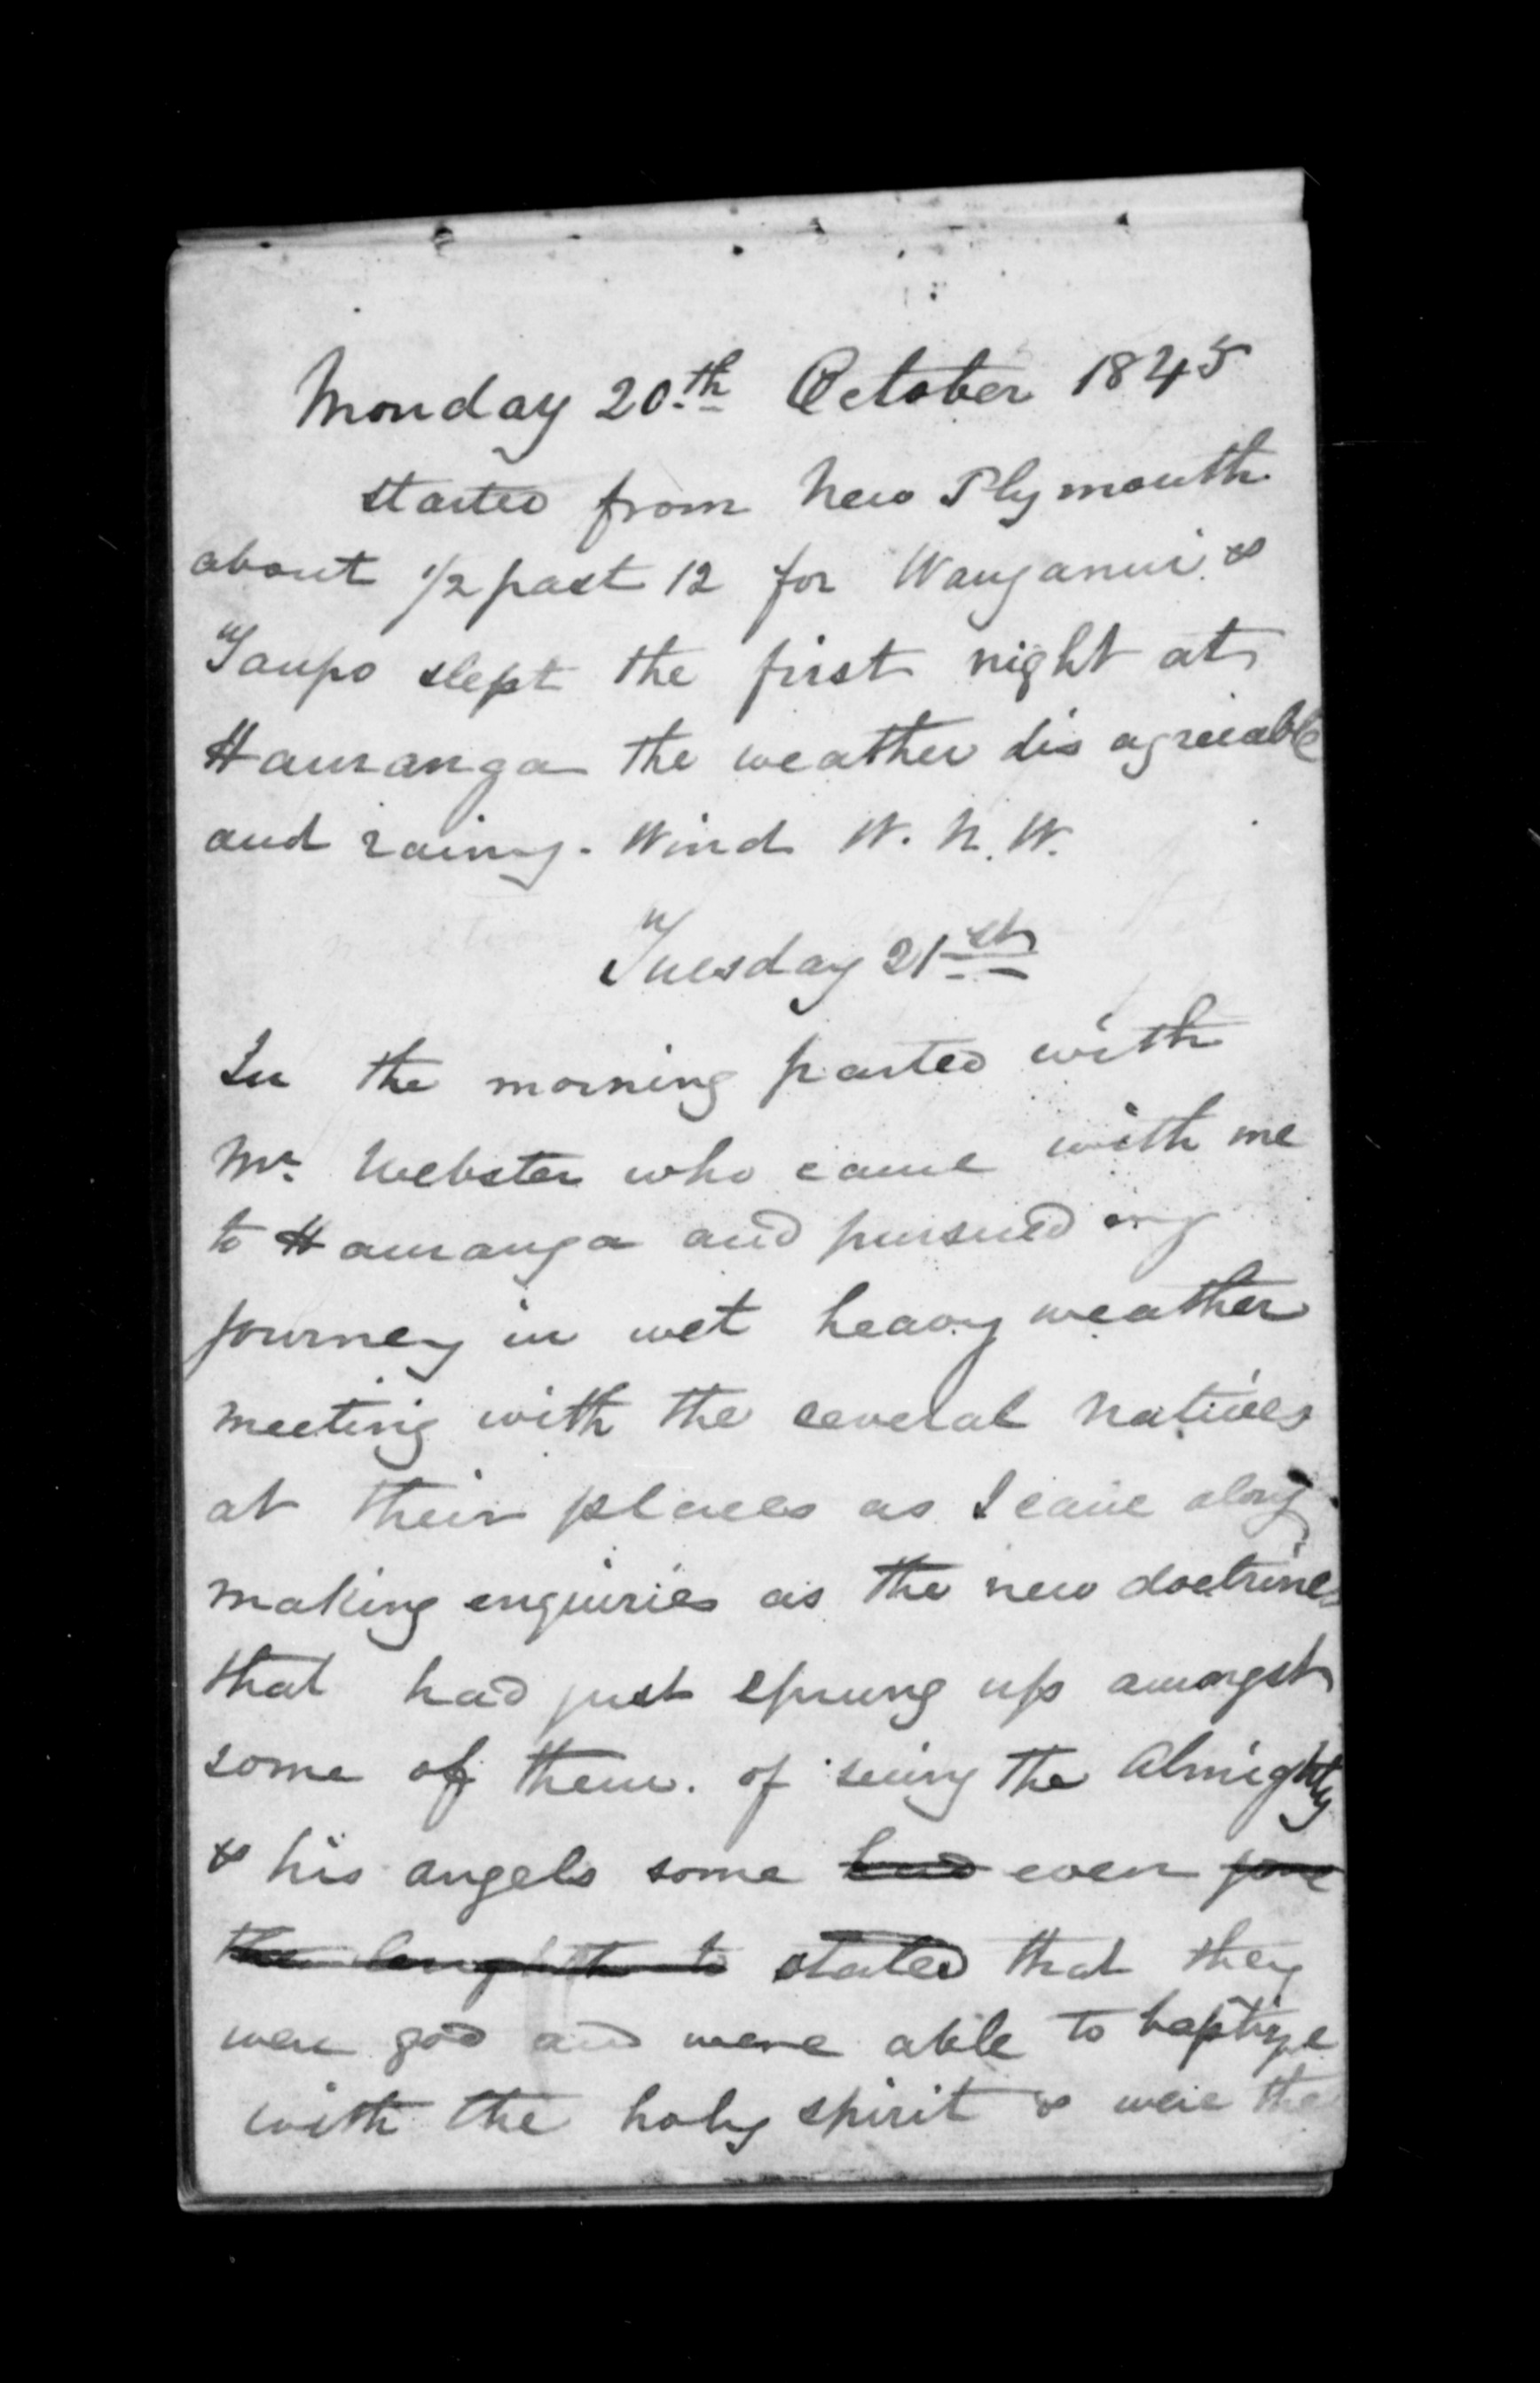 Monday 20th October 1845
started from New Plymouth
about 1/2 past 12 for Wanganui &
Taupo slept the first night at
Hauranga the weather dis agreeable
and rainy. Wind W. N. W.
Tuesday 21st
In the morning parted with
Mr. Webster who came with me
to Hauranga and pursued my
journey in wet heavy weather
meeting with the several natives
at their places as I came along
making enquiries as the new doctrines
that had just sprung up amongst
some of them. of seing the Almighty
& his angels some had even gone
the lenghth to stated that they
were god and were able to baptize
with the holy spirit & were the